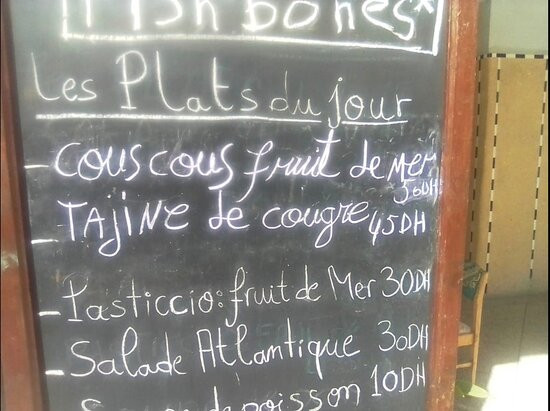 Fishbones*
Les Plats du jour
- Couscous fruit de Mer 50DH
- TAjiNe de cougre 45DH
- Pasticcio: fruit de Mer 30DH
- Salade Atlantique 30DH
de poisson 10DH